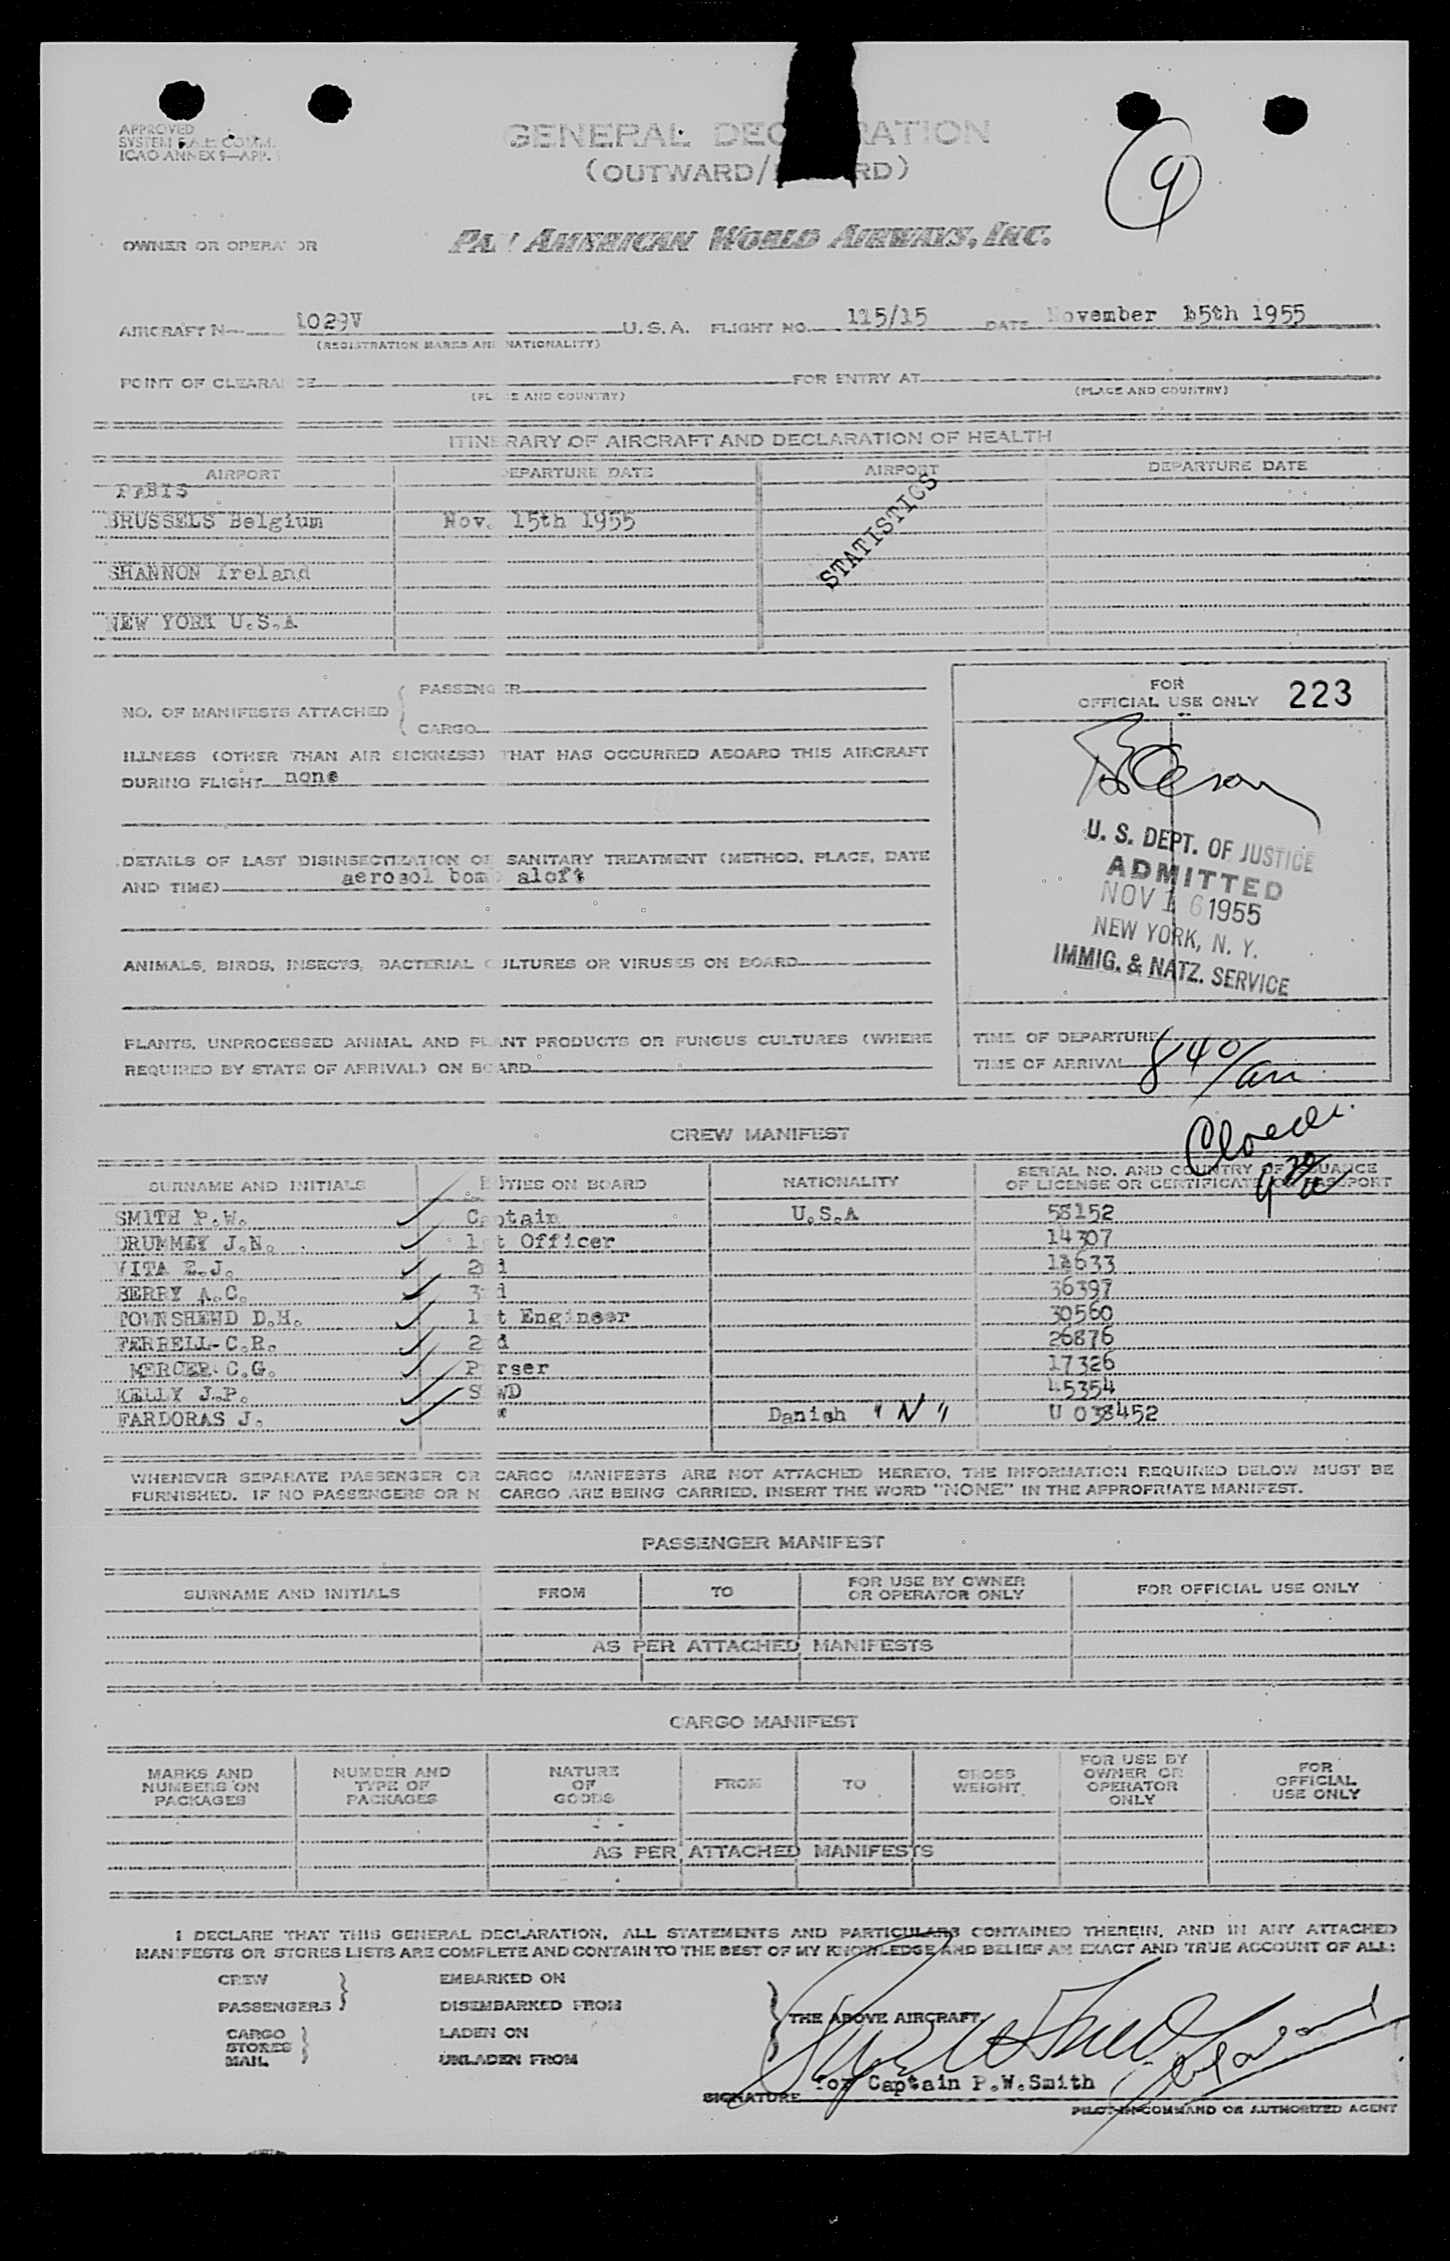 APPROVED
SYSTEM F.A.L. COMM.
ICAO ANNEX 9—APP.
GENERAL DEC RATION
(OUTWARD/ RD)
9
OWNER OR OPERA OR PAN AMERICAN WORLD AIRWAYS, INC.
AIRCRAFT N 1029V U.S.A. FLIGHT NO. 115/15 DATE November 15th 1955
(REGISTRATION MARKS AND NATIONALITY)
POINT OF CLEARANCE FOR ENTRY AT
(PLACE AND COUNTRY) (PLACE AND COUNTRY)
ITINERARY OF AIRCRAFT AND DECLARATION OF HEALTH
AIRPORT DEPARTURE DATE AIRPORT DEPARTURE DATE
PARIS
BRUSSELS Belgium Nov. 15th 1955
STATISTICS
SHANNON Ireland
NEW YORK U.S.A
NO. OF MANIFESTS ATTACHED { PASSENGER
CARGO
FOR
OFFICIAL USE ONLY 223
ILLNESS (OTHER THAN AIR SICKNESS) THAT HAS OCCURRED ABOARD THIS AIRCRAFT
DURING FLIGHT none
U. S. DEPT. OF JUSTICE
ADMITTED
NOV 16 1955
NEW YORK, N. Y.
IMMIG. & NATZ. SERVICE
DETAILS OF LAST DISINSECTIZATION OR SANITARY TREATMENT (METHOD, PLACE, DATE
AND TIME) aerosol bomb aloft
ANIMALS, BIRDS, INSECTS, BACTERIAL CULTURES OR VIRUSES ON BOARD
PLANTS, UNPROCESSED ANIMAL AND PLANT PRODUCTS OR FUNGUS CULTURES (WHERE
REQUIRED BY STATE OF ARRIVAL) ON BOARD
TIME OF DEPARTURE
TIME OF ARRIVAL 840/am
CREW MANIFEST
SURNAME AND INITIALS DUTIES ON BOARD NATIONALITY SERIAL NO. AND COUNTRY OF ISSUANCE
OF LICENSE OR CERTIFICATE OR PASSPORT
SMITH P.W. Captain U.S.A 58152
DRUMMEY J.N. 1st Officer 14307
VITA E.J. 2nd 12633
BERRY A.C. 3rd 36397
TOWNSHEND D.H. 1st Engineer 30560
FERRELL C.R. 2nd 26876
MERCER C.G. Purser 17326
KELLY J.P. STWD 45354
FARDORAS J. " Danish "N" U 038452
WHENEVER SEPARATE PASSENGER OR CARGO MANIFESTS ARE NOT ATTACHED HERETO, THE INFORMATION REQUIRED BELOW MUST BE
FURNISHED. IF NO PASSENGERS OR NO CARGO ARE BEING CARRIED, INSERT THE WORD "NONE" IN THE APPROPRIATE MANIFEST.
PASSENGER MANIFEST
SURNAME AND INITIALS FROM TO FOR USE BY OWNER
OR OPERATOR ONLY FOR OFFICIAL USE ONLY
AS PER ATTACHED MANIFESTS
CARGO MANIFEST
MARKS AND
NUMBERS ON
PACKAGES NUMBER AND
TYPE OF
PACKAGES NATURE
OF
GOODS FROM TO GROSS
WEIGHT FOR USE BY
OWNER OR
OPERATOR
ONLY FOR
OFFICIAL
USE ONLY
AS PER ATTACHED MANIFESTS
I DECLARE THAT THIS GENERAL DECLARATION, ALL STATEMENTS AND PARTICULARS CONTAINED THEREIN, AND IN ANY ATTACHED
MANIFESTS OR STORES LISTS ARE COMPLETE AND CONTAIN TO THE BEST OF MY KNOWLEDGE AND BELIEF AN EXACT AND TRUE ACCOUNT OF ALL:
CREW EMBARKED ON
PASSENGERS DISEMBARKED FROM
THE ABOVE AIRCRAFT
CARGO LADEN ON
STORES
MAIL UNLADEN FROM
SIGNATURE for Captain P.W.Smith
PILOT-IN-COMMAND OR AUTHORIZED AGENT